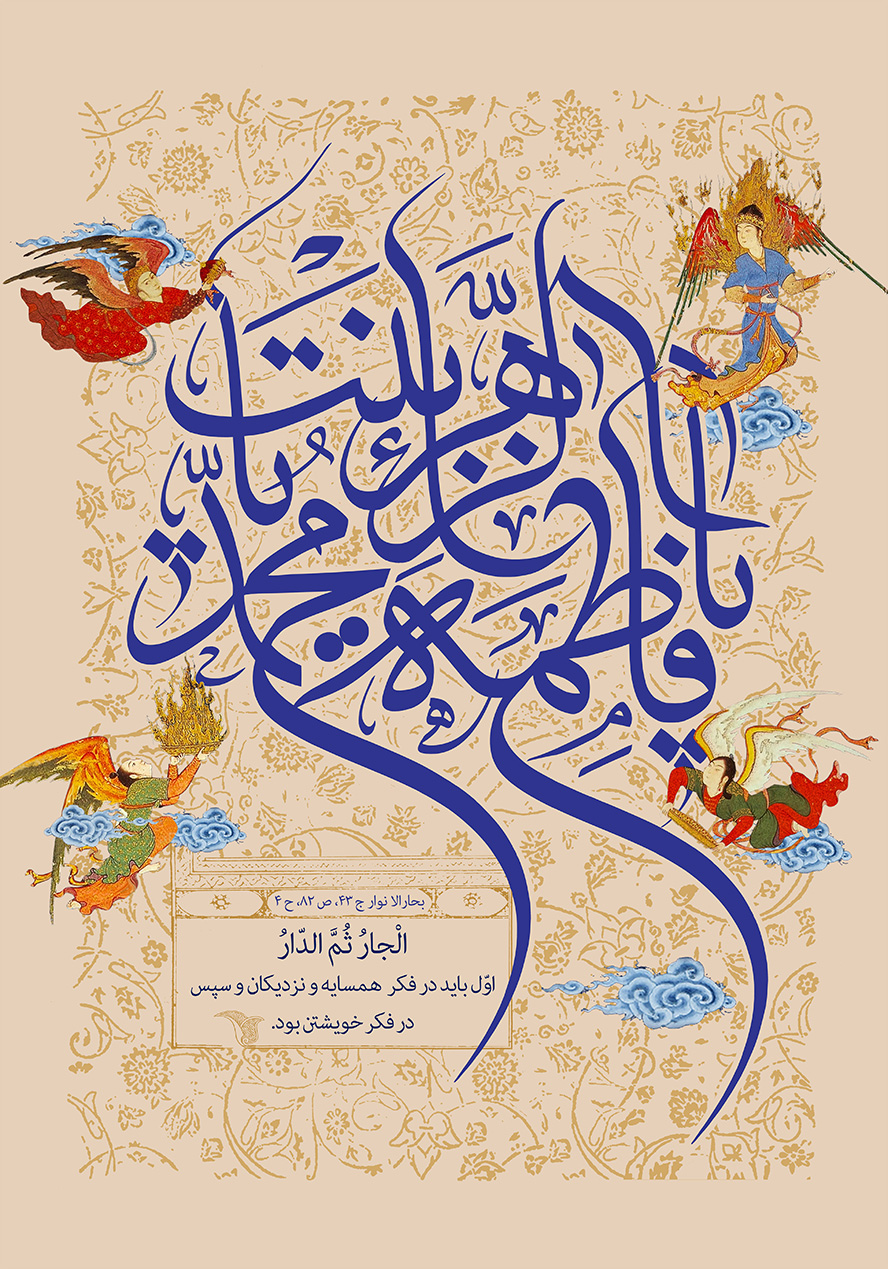 یا فاطمه الزهراء یا بنت محمد
بحارالا نوار ج ۴۳، ص ۸۲، ح ۴
الْجارُ ثُمَّ الدّارُ
اوّل باید در فکر همسایه و نزدیکان و سپس
در فکر خویشتن بود.